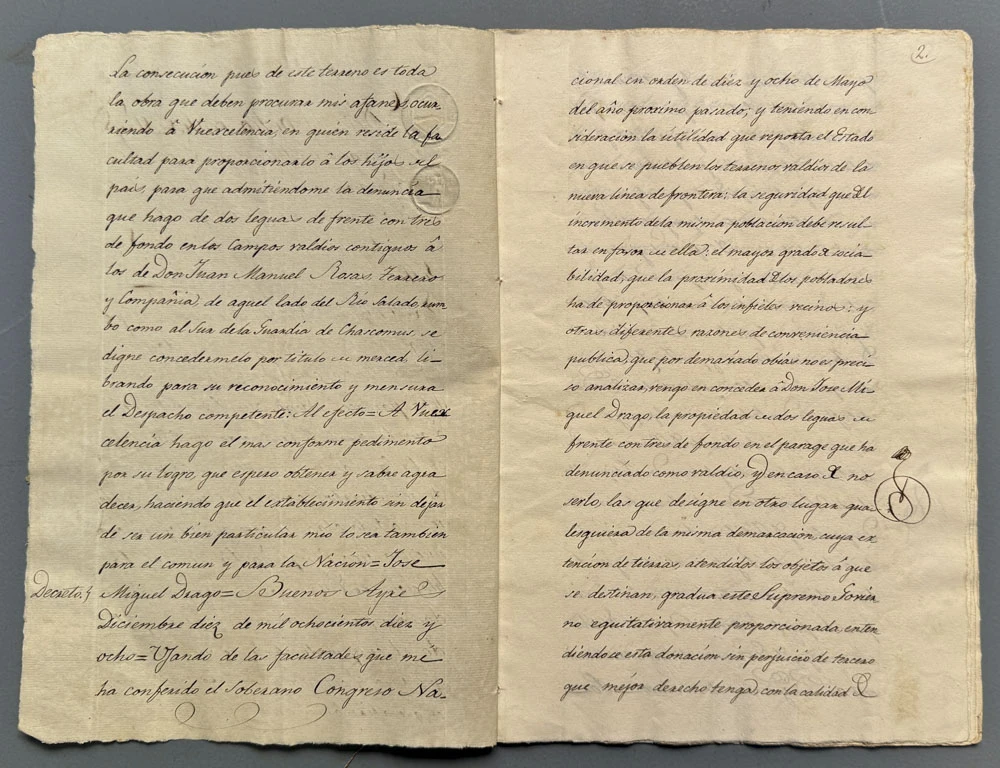 La consecucion pues de este terreno es toda
la obra que deben procurar mis afanes, ocur
riendo â Vuexcelencia, en quien reside la fa
cultad para proporcionarlo â los hijos del
pais, para que admitiéndome la denuncia
que hago de dos leguas de frente con tres
de fondo en los Campos valdios contiguos â
los de Don Juan Manuel Rosas Terrero
y Compañia, de aquel lado del Rio Salado, rum
bo como al Sur de la Guardia de Chascomus, se
digne concedermelo por titulo de merced, li-
brando para su reconocimiento y mensura
el Despacho competente: Al efecto= A Vuex
celencia hago el mas conforme pedimento
por su logro, que espero obtener y sabre agra
decer, haciendo que el establecimiento sin dejar
de ser un bien particular mio lo sea tambien
para el comun y para la Nación= Jose
Decreto.
Miguel Drago= Buenos Ayres
Diciembre diez de mil ochocientos diez y
ocho= Usando de las facultades que me
ha conferido el Soberano Congreso Na-
2.
cional en orden de diez y ocho de Mayo
del año proximo pasado; y teniendo en con
sideracion la utilidad que reporta el Estado
en que se pueblen los terrenos valdios de la
nueva linea de frontera; la seguridad que del
incremento de la misma poblacion debe resul-
tar en favor de ella: el mayor grado de socia-
bilidad, que la proximidad de los pobladores
ha de proporcionar â los infieles vecinos: y
otras diferentes razones de conveniencia
publica, que por demasiado obias no es preci-
so analizar, vengo en conceder â Don Jose Mi-
guel Drago, la propiedad de dos leguas de
frente con tres de fondo en el parage que ha
denunciado como valdio, y en caso de no
serlo, las que designe en otro lugar qua
lesquiera de la misma demarcacion, cuya ex
tencion de tierras, atendidos los objetos â que
se destinan, gradua este Supremo Govier
no equitativamente proporcionada, enten
diendose esta donacion sin perjuicio de tercero
que mejor derecho tenga, con la calidad de